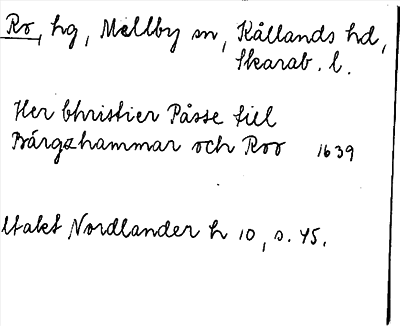 Ro, hg, Mellby sn, Kållands hd,
Skarab. l.
Her Christier Påsse till
Bårgzhammar och Roo 1639
Utakt Nordlander h 10, s. 45.